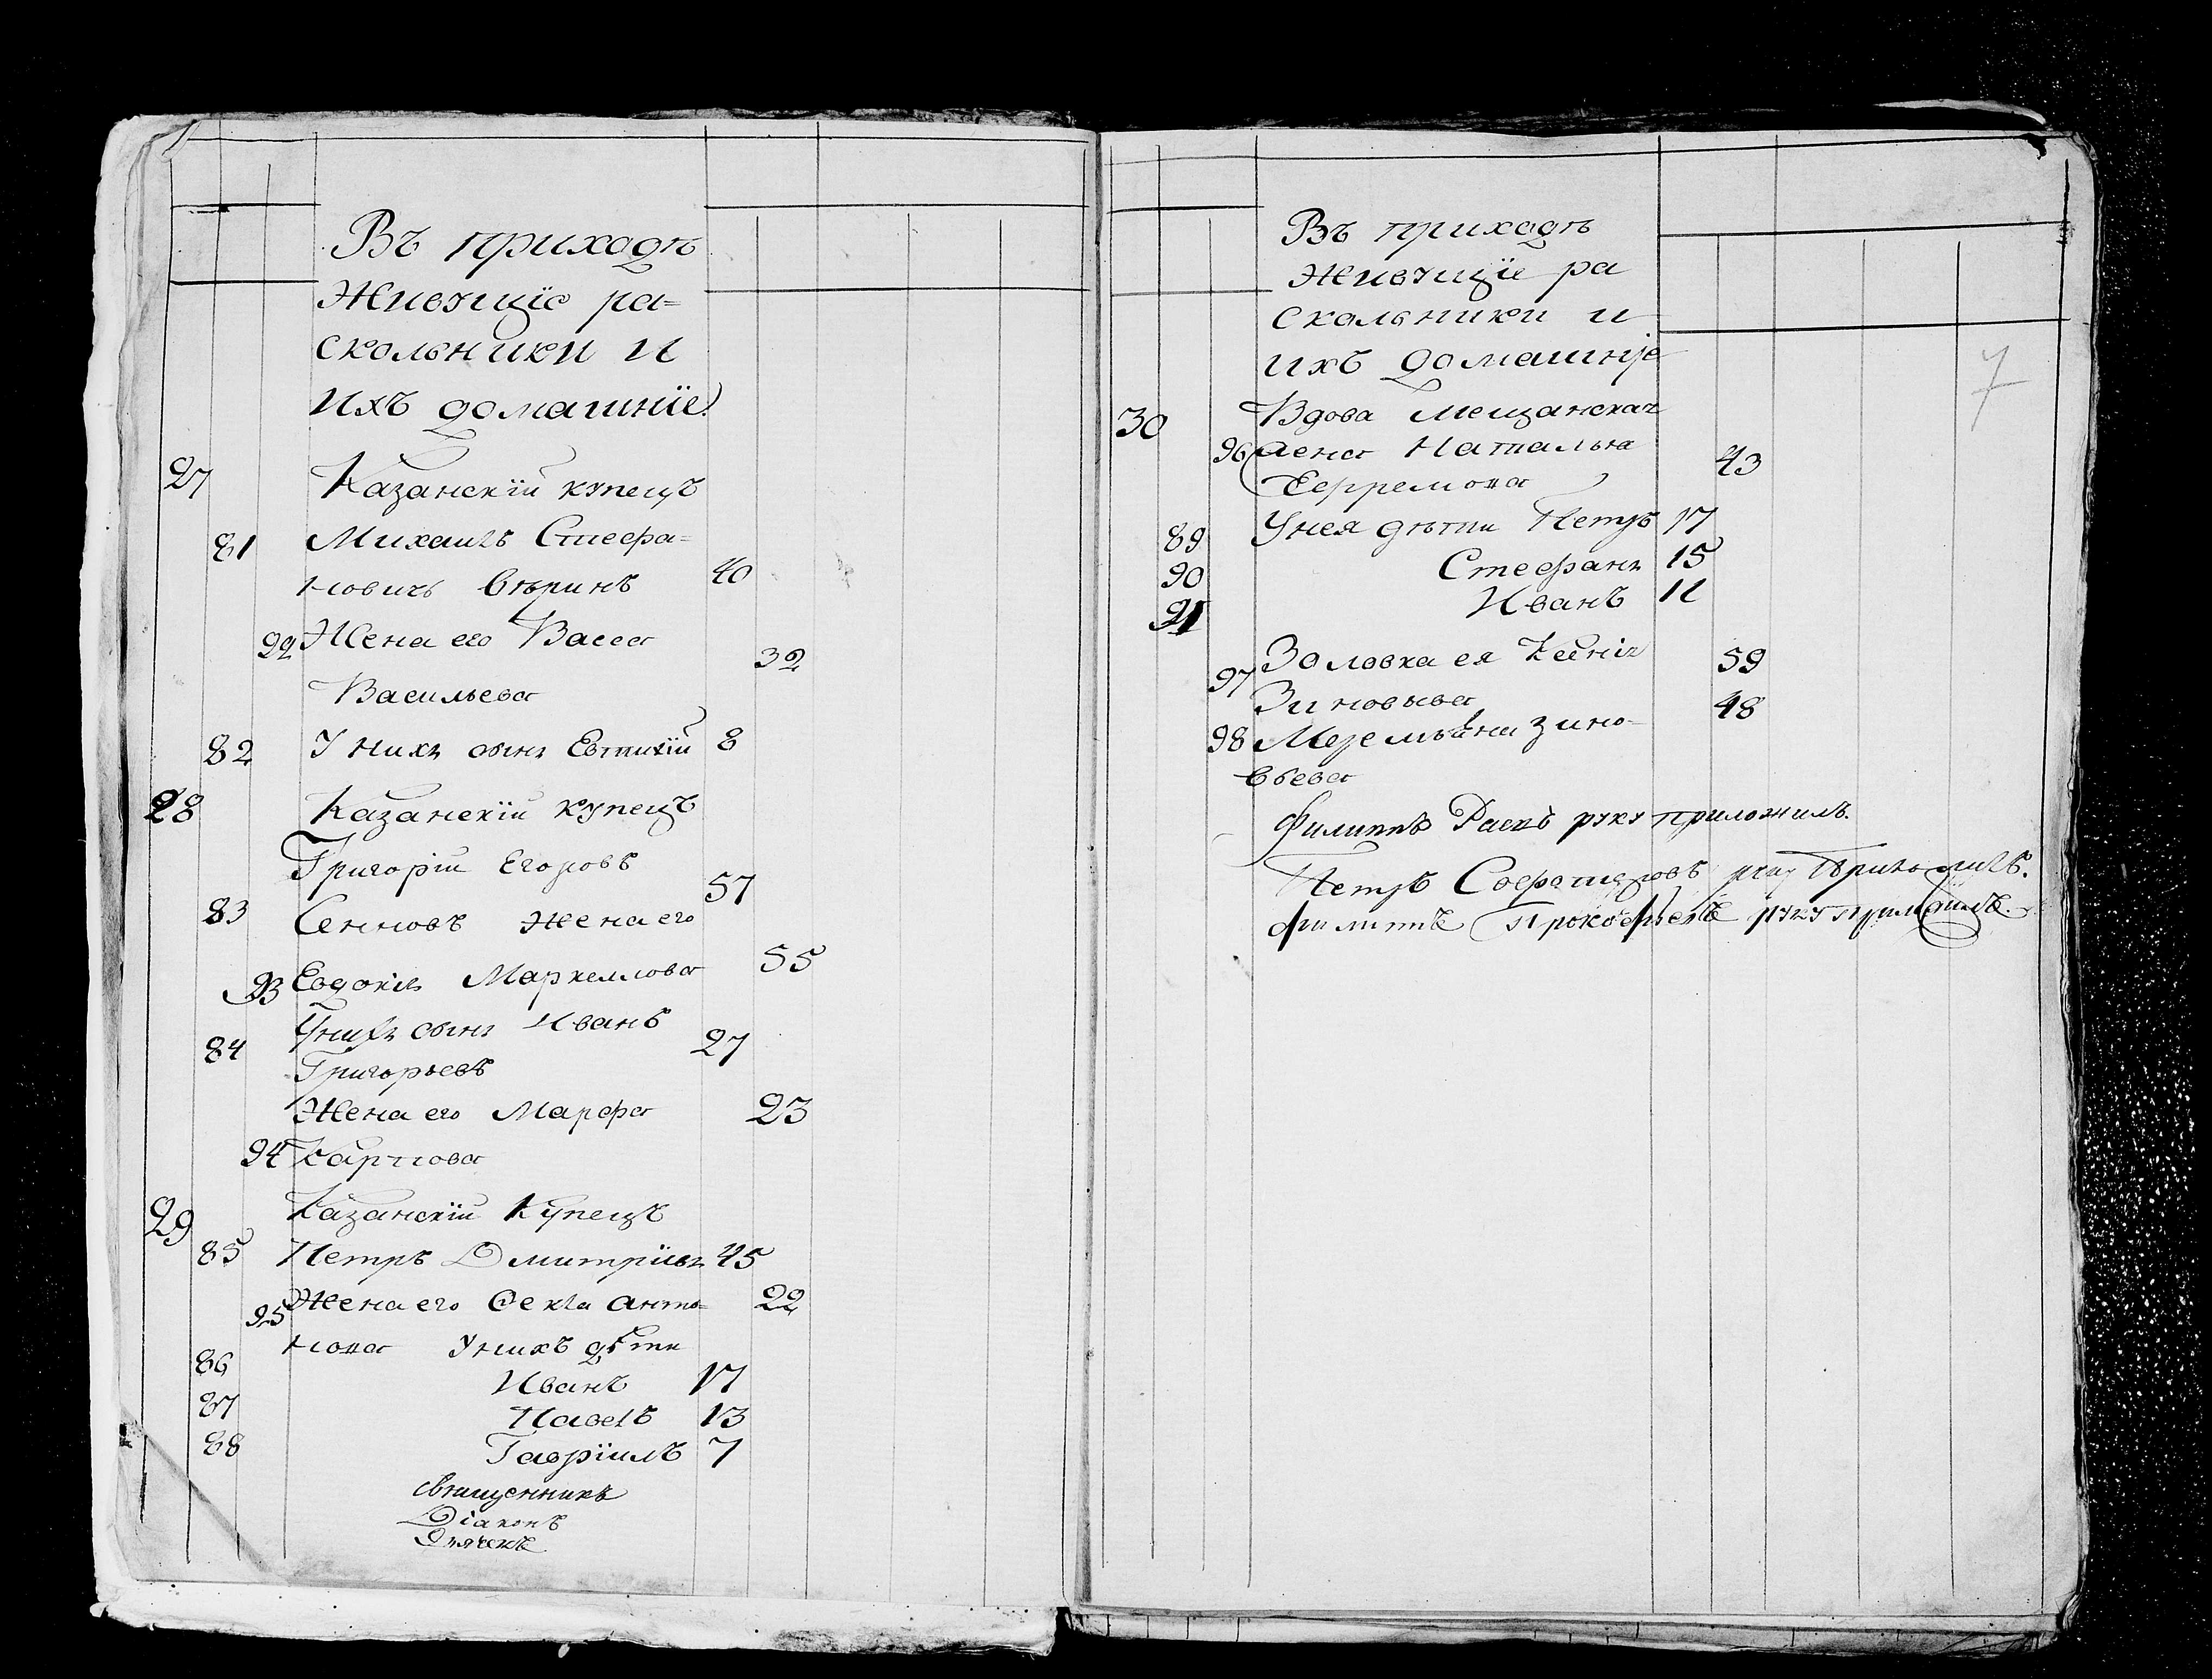 Въ приходѣ
Живущіе ра=
скольники и
ихъ домашніе
27 Казанскій купецъ
81 Михаилъ Стефа=
новичь Вѣринъ 40
92 Жена его Васса 32
Васильева
82 У нихъ сынъ Евтихій 8
28 Казанскій купецъ
Григорій Егоровъ 57
83 Сенновъ Жена его
93 Евдокія Маркеллова 55
84 У нихъ сынъ Иванъ 27
Григорьевъ
Жена его Марфа 23
94 Карпова
29 Казанскій Купецъ
85 Петръ Дмитріевъ 45
95 Жена его Ѳекла Анто= 22
нова У нихъ дѣти
86 Иванъ 17
87 Павелъ 13
88 Гавріилъ 7
Священникъ
Діаконъ
Дьячекъ
Въ приходѣ
Живущіе ра
скольники и
ихъ домашніе
7
30 Вдова Мещанская
96 жена Наталья 43
Ефремова
89 У нея дѣти Петръ 17
90 Стефанъ 15
91 Иванъ 11
97 Золовка ея Ксенія 59
Зиновьева 48
98 Зино-
вьева
Филиппъ руку приложилъ.
Петръ руку приложилъ.
Филиппъ Прокофьевъ руку приложилъ.